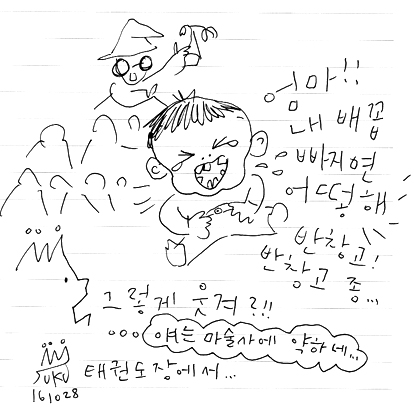 엄마!!
내 배꼽
빠지면
어떻해
반창고!
반창고 좀...
그렇게 웃겨?!!
얘는 마술사에 약하네...
태권도장에서...
JUKU
161028